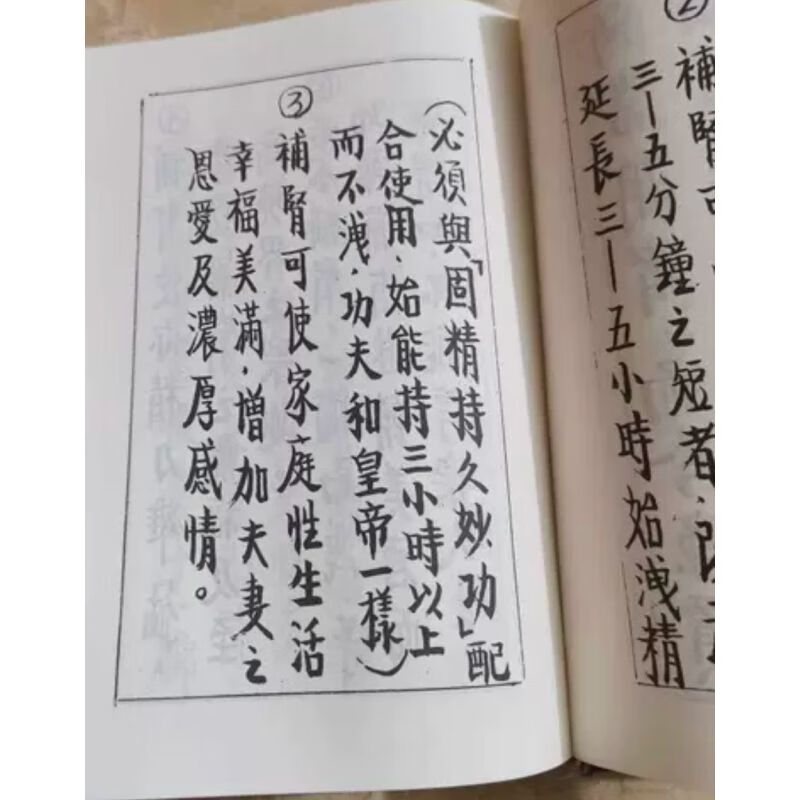 ②
補腎可
三—五分鐘之短者，
延長三—五小時始洩精
（必須與「固精持久妙功」配
合使用，始能持三小時以上
而不洩，功夫和皇帝一樣）
③
補腎可使家庭性生活
幸福美滿，增加夫妻之
恩愛及濃厚感情。